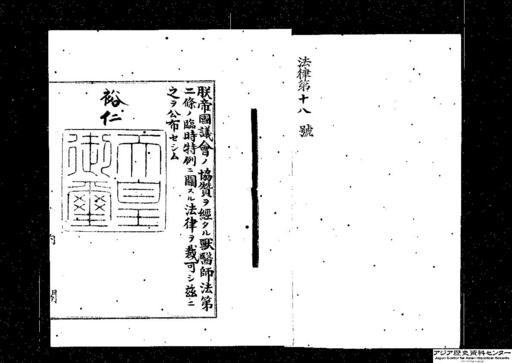 法律第十八號
朕帝國議會ノ協贊ヲ經タル獸醫師法第
二條ノ臨時特例ニ關スル法律ヲ裁可シ茲ニ
之ヲ公布セシム
裕仁
天皇
御璽
内閣
アジア歴史資料センター
Japan Center for Asian Historical Records